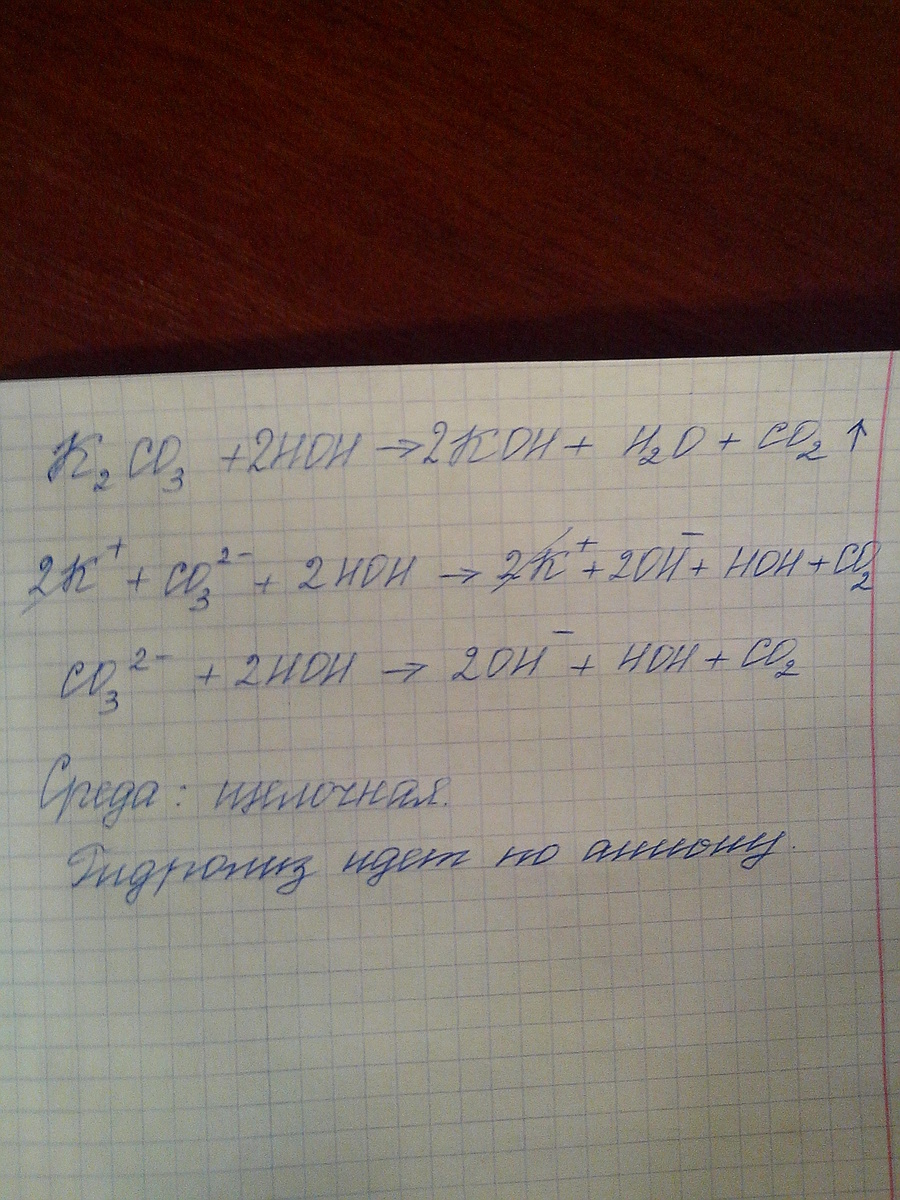 K₂CO₃ + 2HOH → 2KOH + H₂O + CO₂ ↑
2K⁺ + CO₃²⁻ + 2HOH → 2K⁺ + 2OH⁻ + HOH + CO₂
CO₃²⁻ + 2HOH → 2OH⁻ + HOH + CO₂
Среда: щелочная.
Гидролиз идет по аниону.